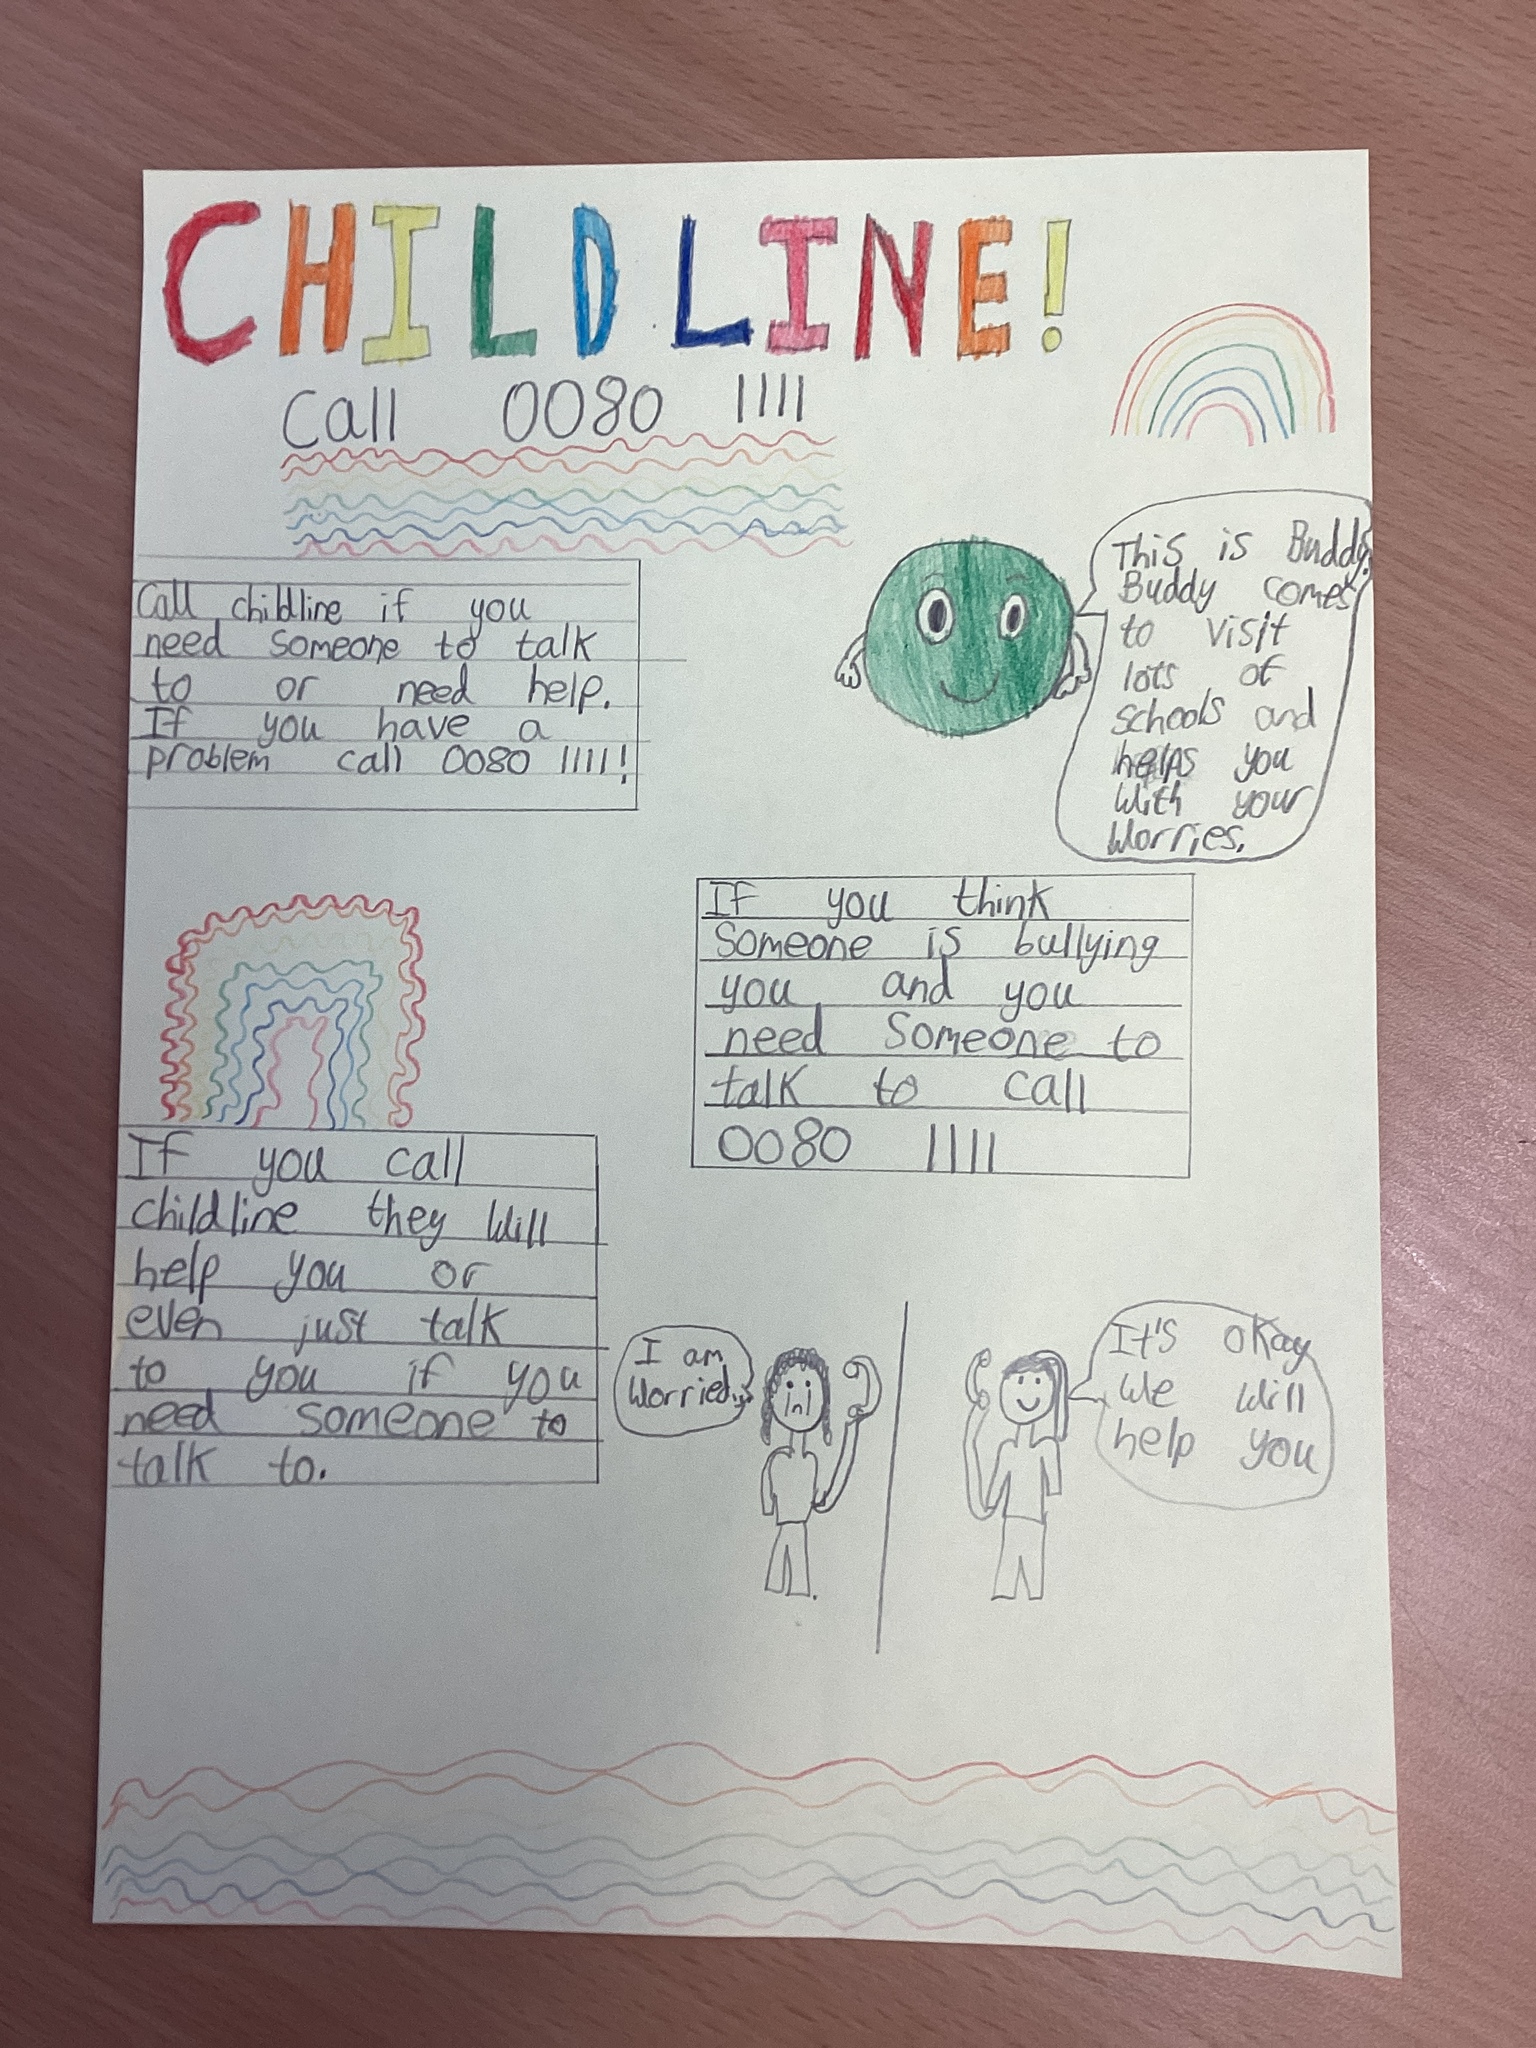 CHILDLINE!
Call 0080 1111
This is Buddy.
Buddy comes
to visit
lots of
schools and
helps you
with your
worries.
Call childline if you
need someone to talk
to or need help.
If you have a
problem call 0080 1111!
If you think
someone is bullying
you and you
need someone to
talk to call
0080 1111
If you call
childline they will
help you or
even just talk
to you if you
need someone to
talk to.
I am
worried...
It's okay
we will
help you